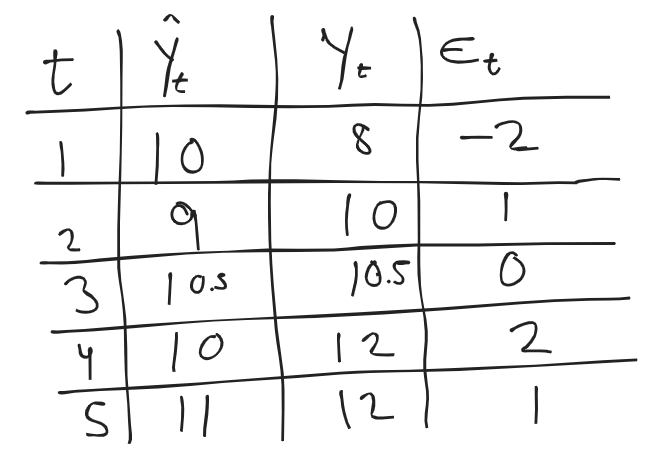 t Ŷt Yt ϵt
1 10 8 -2
2 9 10 1
3 10.5 10.5 0
4 10 12 2
5 11 12 1